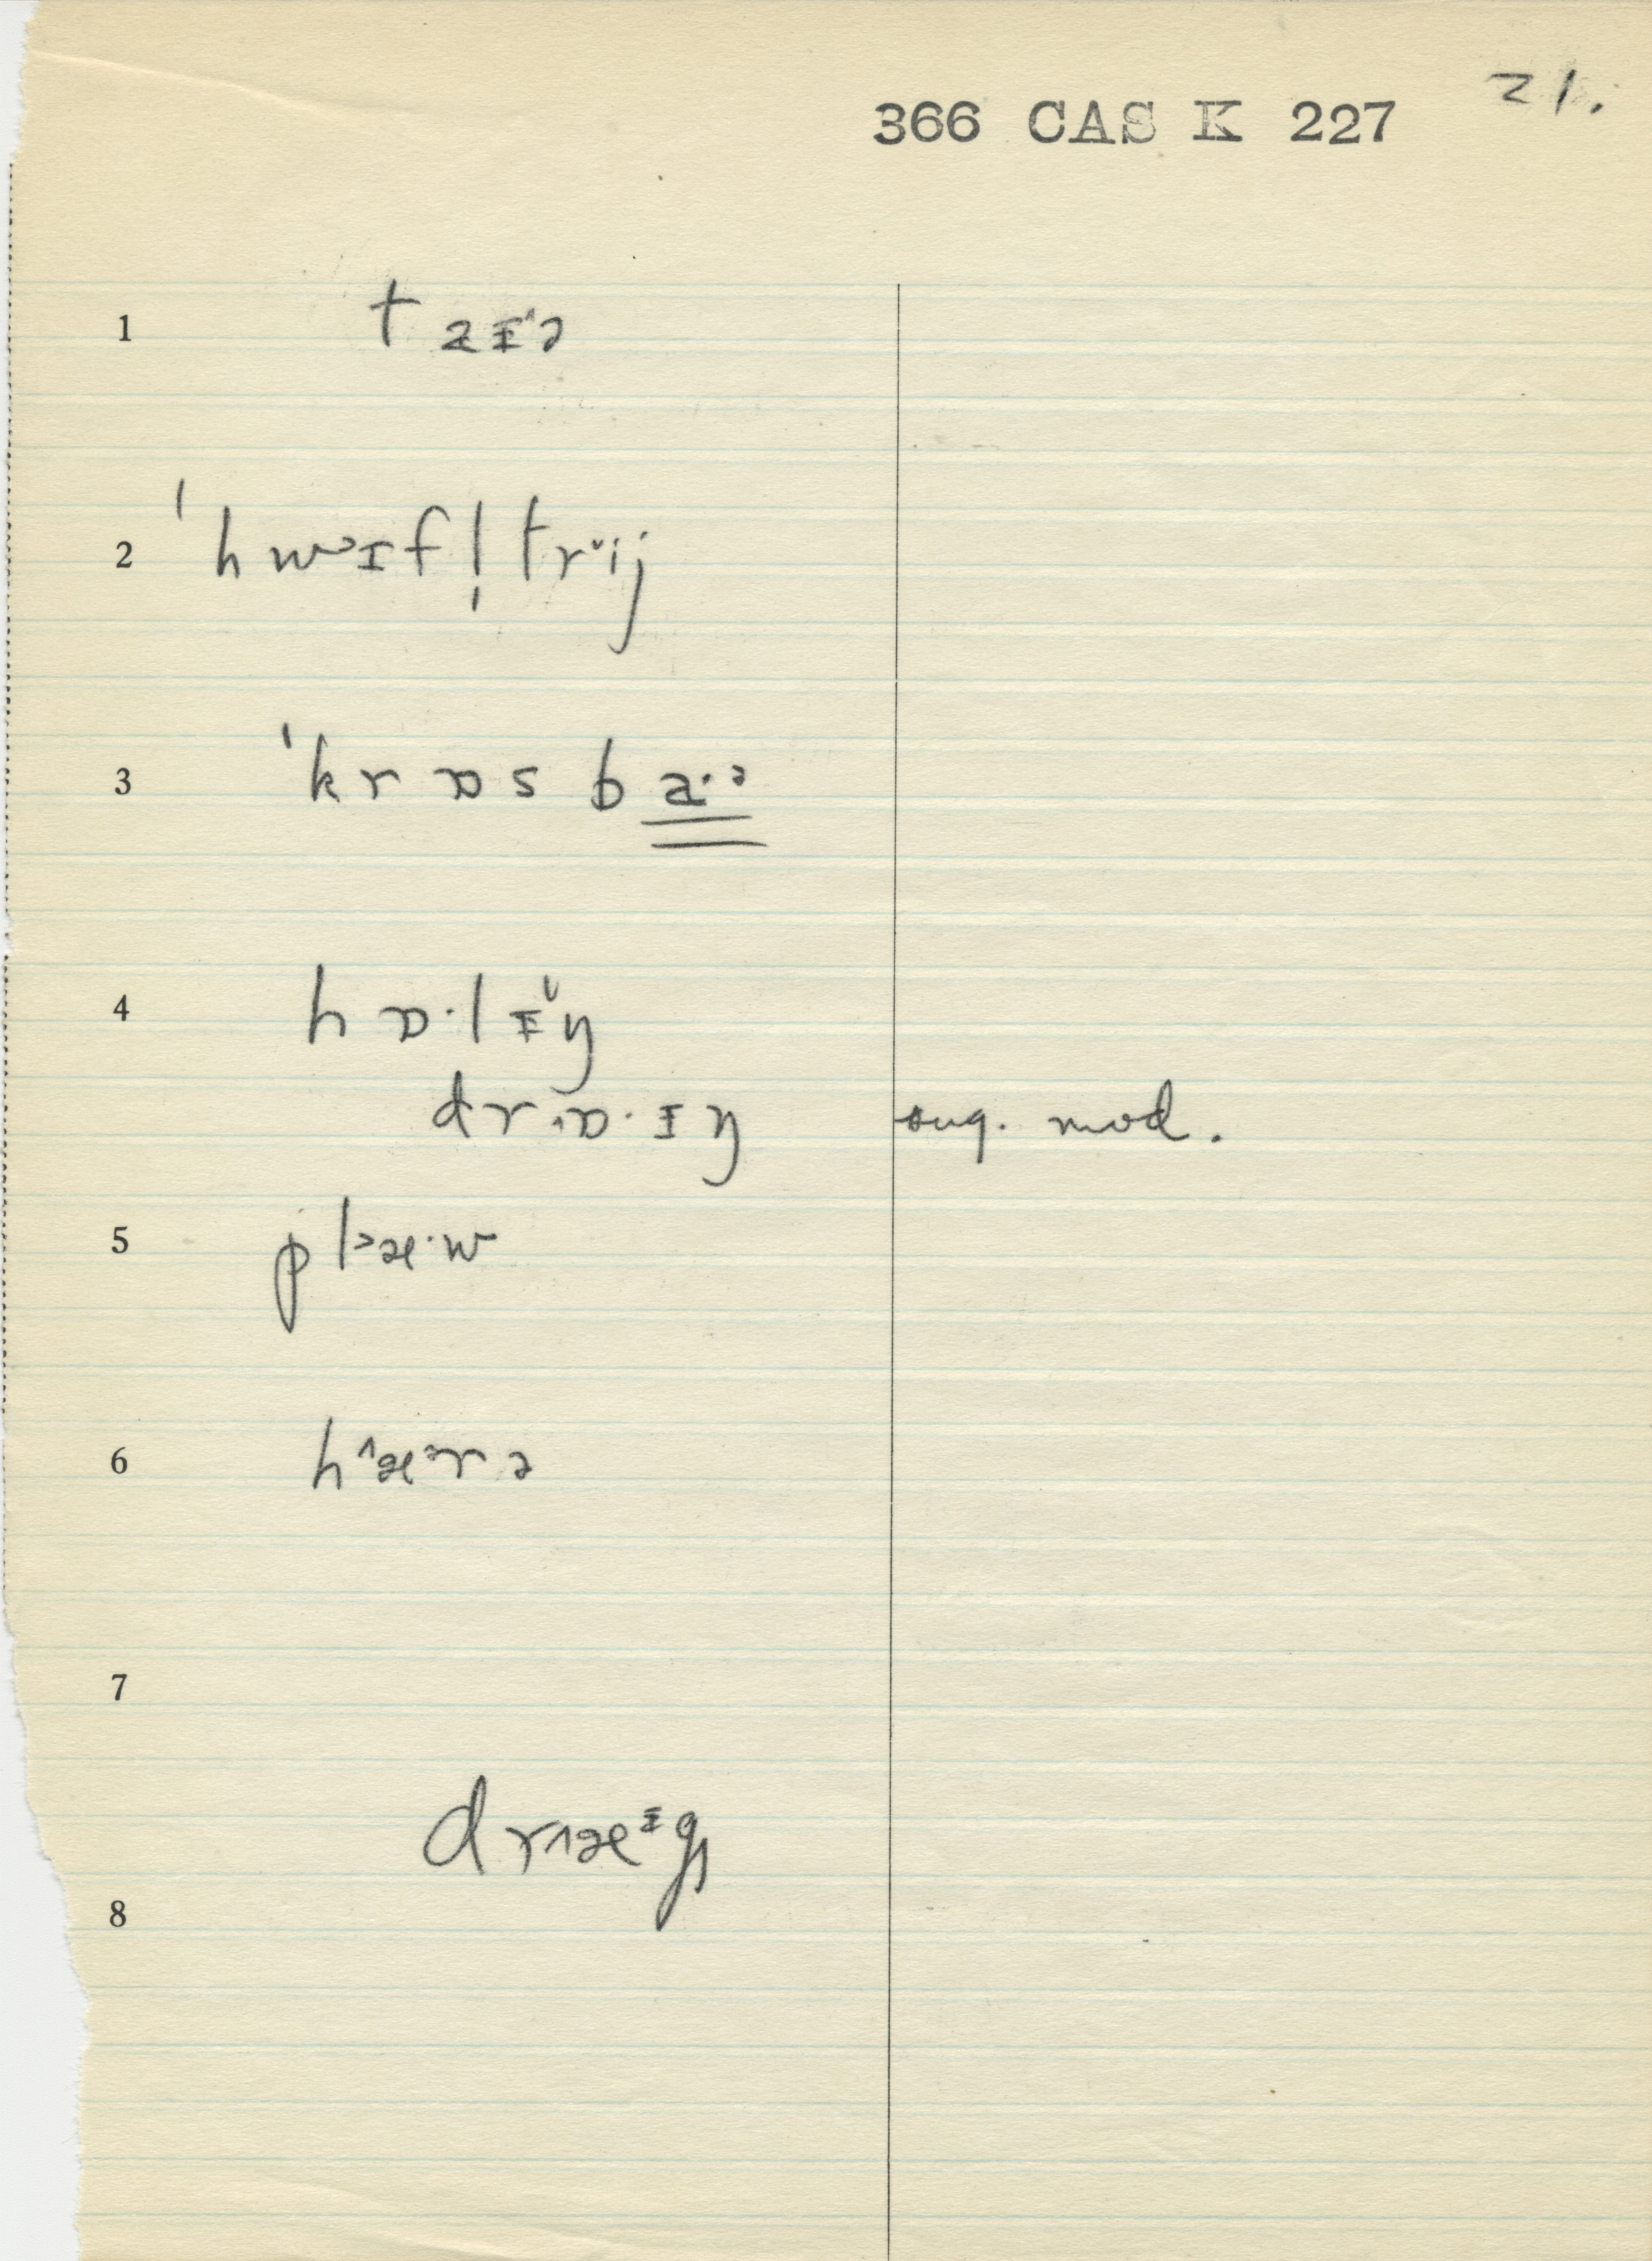 21.
366 CAS K 227
1 t aɪˈə
2 ˈhwɪfl̩trˇij
3 ˈkrɒsbaˑᵊ
4 hɒˑlɪ̌ŋ
drˬɒˑɪŋ sug. mod.
5 pl˃æˑw
6 h^æᵊrə
7
dr^æᶦg
8